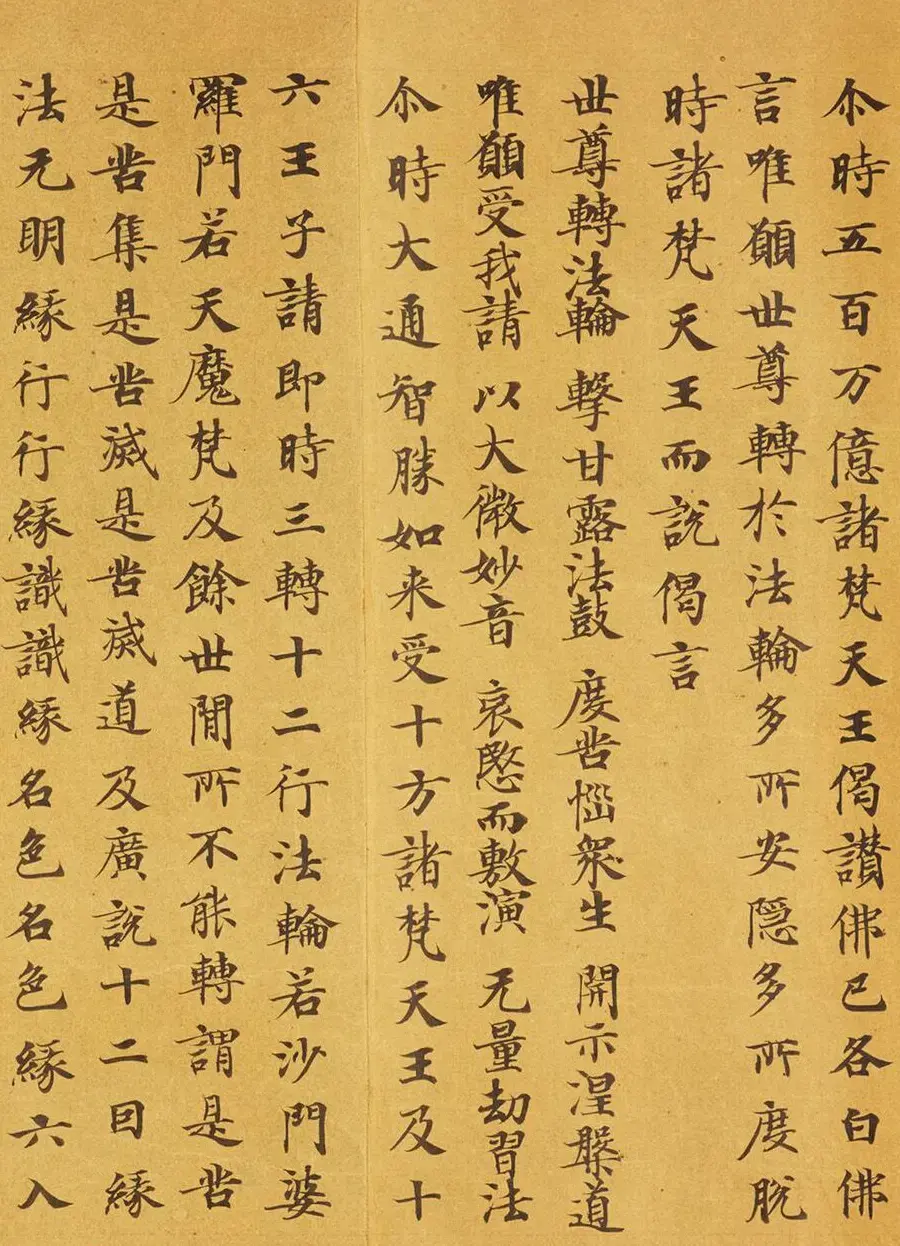 尒時五百万億諸梵天王偈讃佛已各白佛
言唯願世尊轉於法輪多所安隱多所度脫
時諸梵天王而說偈言
世尊轉法輪 擊甘露法鼓 度苦惱衆生 開示涅槃道
唯願受我請 以大微妙音 哀愍而敷演 无量劫習法
尒時大通智勝如来受十方諸梵天王及十
六王子請即時三轉十二行法輪若沙門婆
羅門若天魔梵及餘世閒所不能轉謂是苦
是苦集是苦滅是苦滅道及廣說十二因緣
法无明緣行行緣識識緣名色名色緣六入